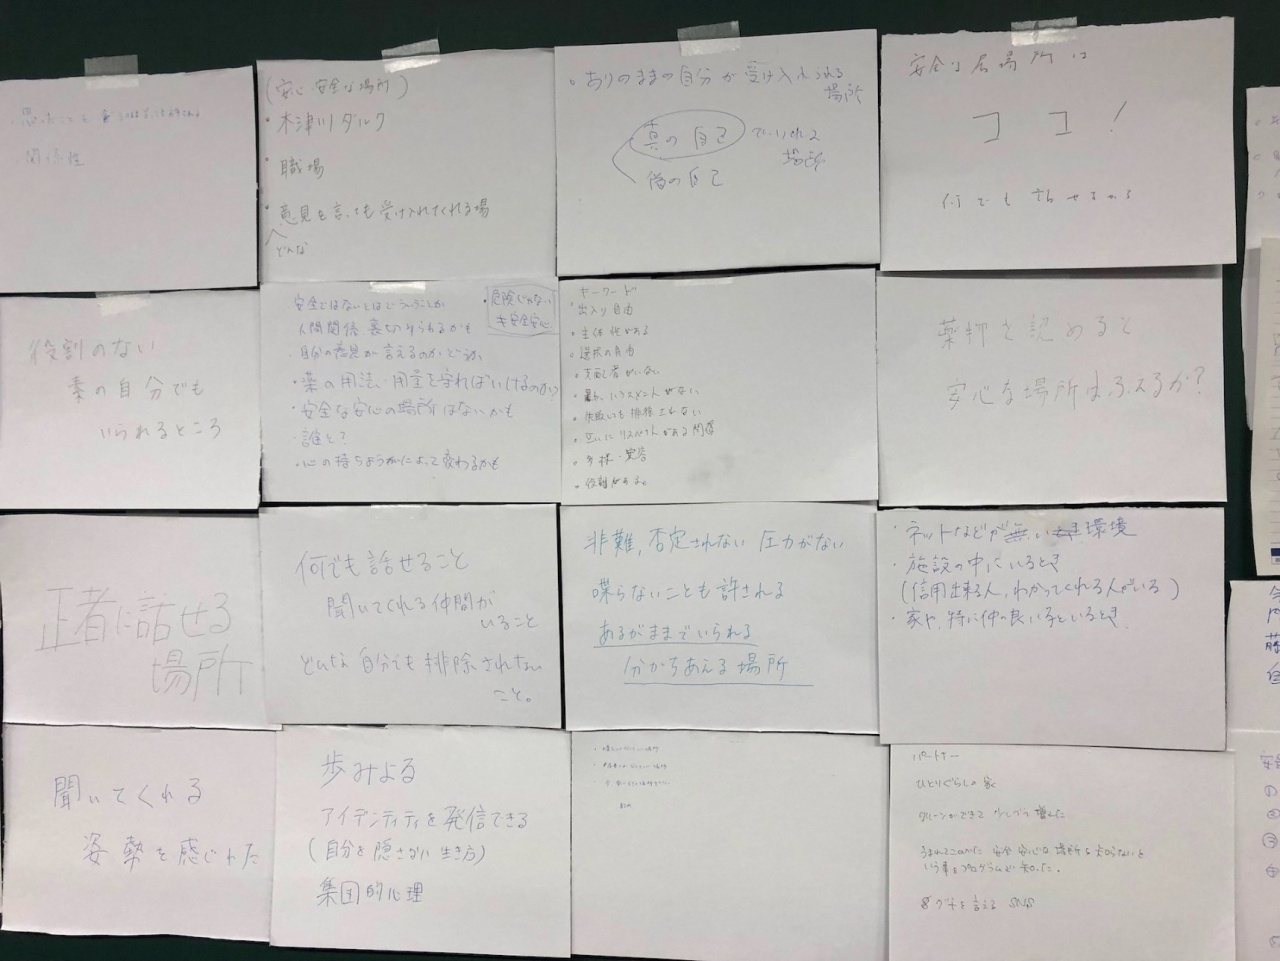 関係性
(安心安全な場所)
・木津川ダルク
・職場
・意見を言っても受け入れてくれる場
どんな
・ありのままの自分が受け入れられる
場所
真の自己 でいられる
場所
偽の自己
安全な居場所は
ココ!
何でも話せるから
役割のない
素の自分でも
いられるところ
安全ではないとはどういうことか
人間関係 裏切りられるかも
・自分の意見が言えるのかどうか、
・薬の用法・用量を守ればいけるのか?
・安全な安心の場所はないかも
・誰と?
・心の持ちようがによって変わるかも
・危険じゃない
≠安全安心
キーワード
・出入り自由
・主体性がある
・選択の自由
・支配者がいない
・暴力、ハラスメントがない
・失敗しても排除されない
・互いにリスペクトがある関係
・多様・寛容
・信頼がある。
薬物を認めると
安心な場所はふえるか?
正者に話せる
場所
何でも話せること
聞いてくれる仲間が
いること
どんな自分でも排除されない
こと。
非難,否定されない 圧力がない
喋らないことも許される
あるがままでいられる
分かちあえる場所
・ネットなどが無い環境
・施設の中にいるとき
(信用出来る人,わかってくれる人がいる)
・家や、特に仲の良い子といるとき
聞いてくれる
姿勢を感じれた
歩みよる
アイデンティティを発信できる
(自分を隠さない生き方)
集団的心理
パートナー
ひとりぐらしの家
クリーンができて 少しづつ増えた
うまれてこのかた 安全 安心な 場所を知らないと
いう事をプログラムで知った。
グチを言える SNS